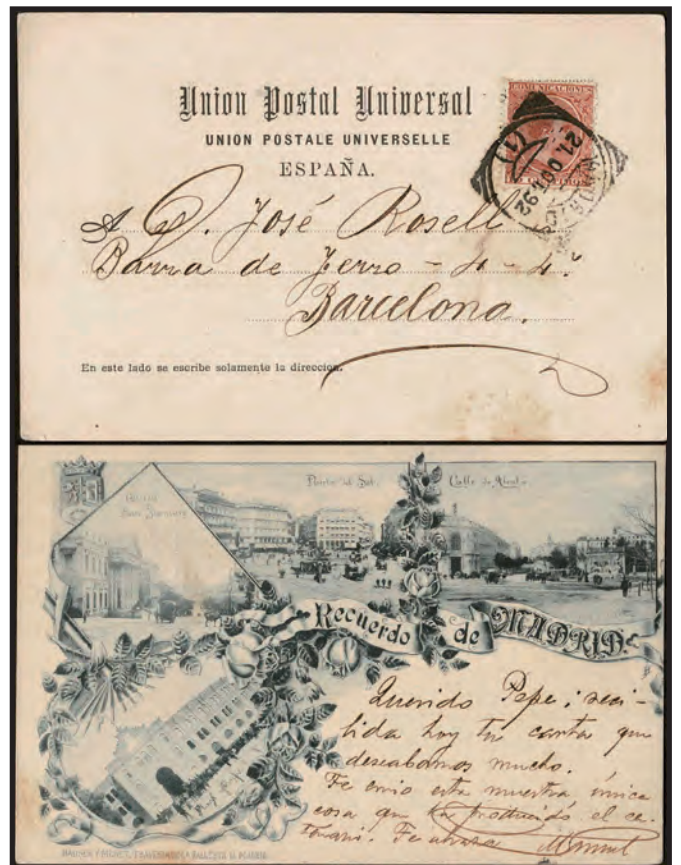 Union Postal Universal
UNION POSTALE UNIVERSELLE
ESPAÑA.
COMUNICACIONES
21 OCT 92
(1)
A D. José Rosell
Barra de Ferro - 4 - 4º
Barcelona.
En este lado se escribe solamente la direccion.
Puerta del Sol
Calle de Alcalá
Recuerdo de MADRID
Querido Pepe: reci-
bida hoy tu carta que
deseabamos mucho.
Te envio esta muestra única
cosa que ha producido el ce-
Te abraza Manuel
HAUSER Y MENET,